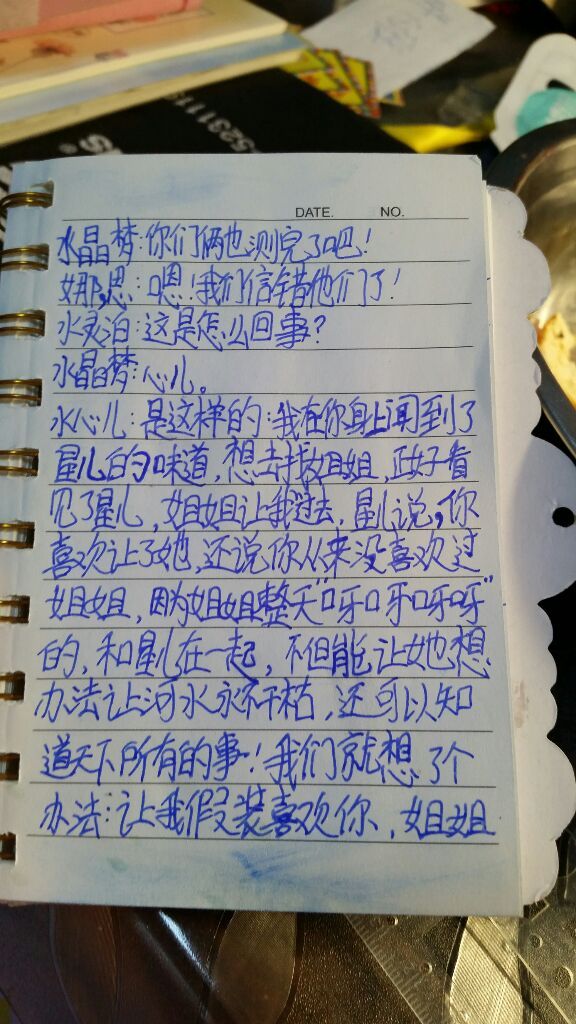 5231115
DATE. NO.
水晶梦:你们俩也测完了吧!
娜思:嗯!我们信错他们了!
水灵泊:这是怎么回事?
水晶梦:心儿。
水心儿:是这样的:我在你身上闻到了
星儿的味道,想去找姐姐,正好看
见了星儿,姐姐让我过去,星儿说,你
喜欢让了她,还说你从来没喜欢过
姐姐,因为姐姐整天"呀呀呀呀"
的,和星儿在一起,不但能让她想
办法让河水永不干枯,还可以知
道天下所有的事!我们就想了个
办法:让我假装喜欢你,姐姐